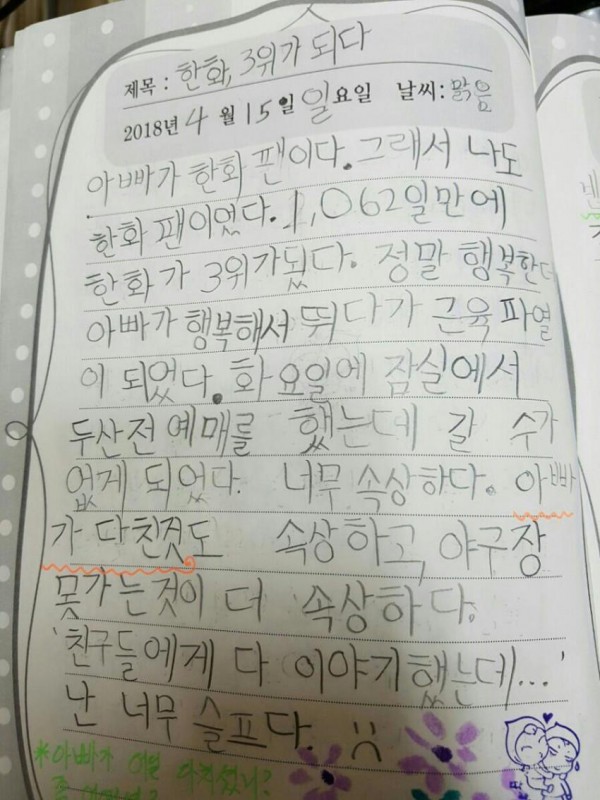 제목: 한화, 3위가 되다
2018년 4월 15일 일요일 날씨: 맑음
아빠가 한화 팬이다. 그래서 나도
한화 팬이었다. 1,062일만에
한화가 3위가됬다. 정말 행복한다
아빠가 행복해서 뛰다가 근육파열
이 되었다. 화요일에 잠실에서
두산전 예매를 했는데 갈 수가
없게 되었다. 너무 속상하다. 아빠
가 다친것도 속상하고, 야구장
못가는것이 더 속상하다.
'친구들에게 다 이야기했는데...'
난 너무 슬프다.
*아빠가